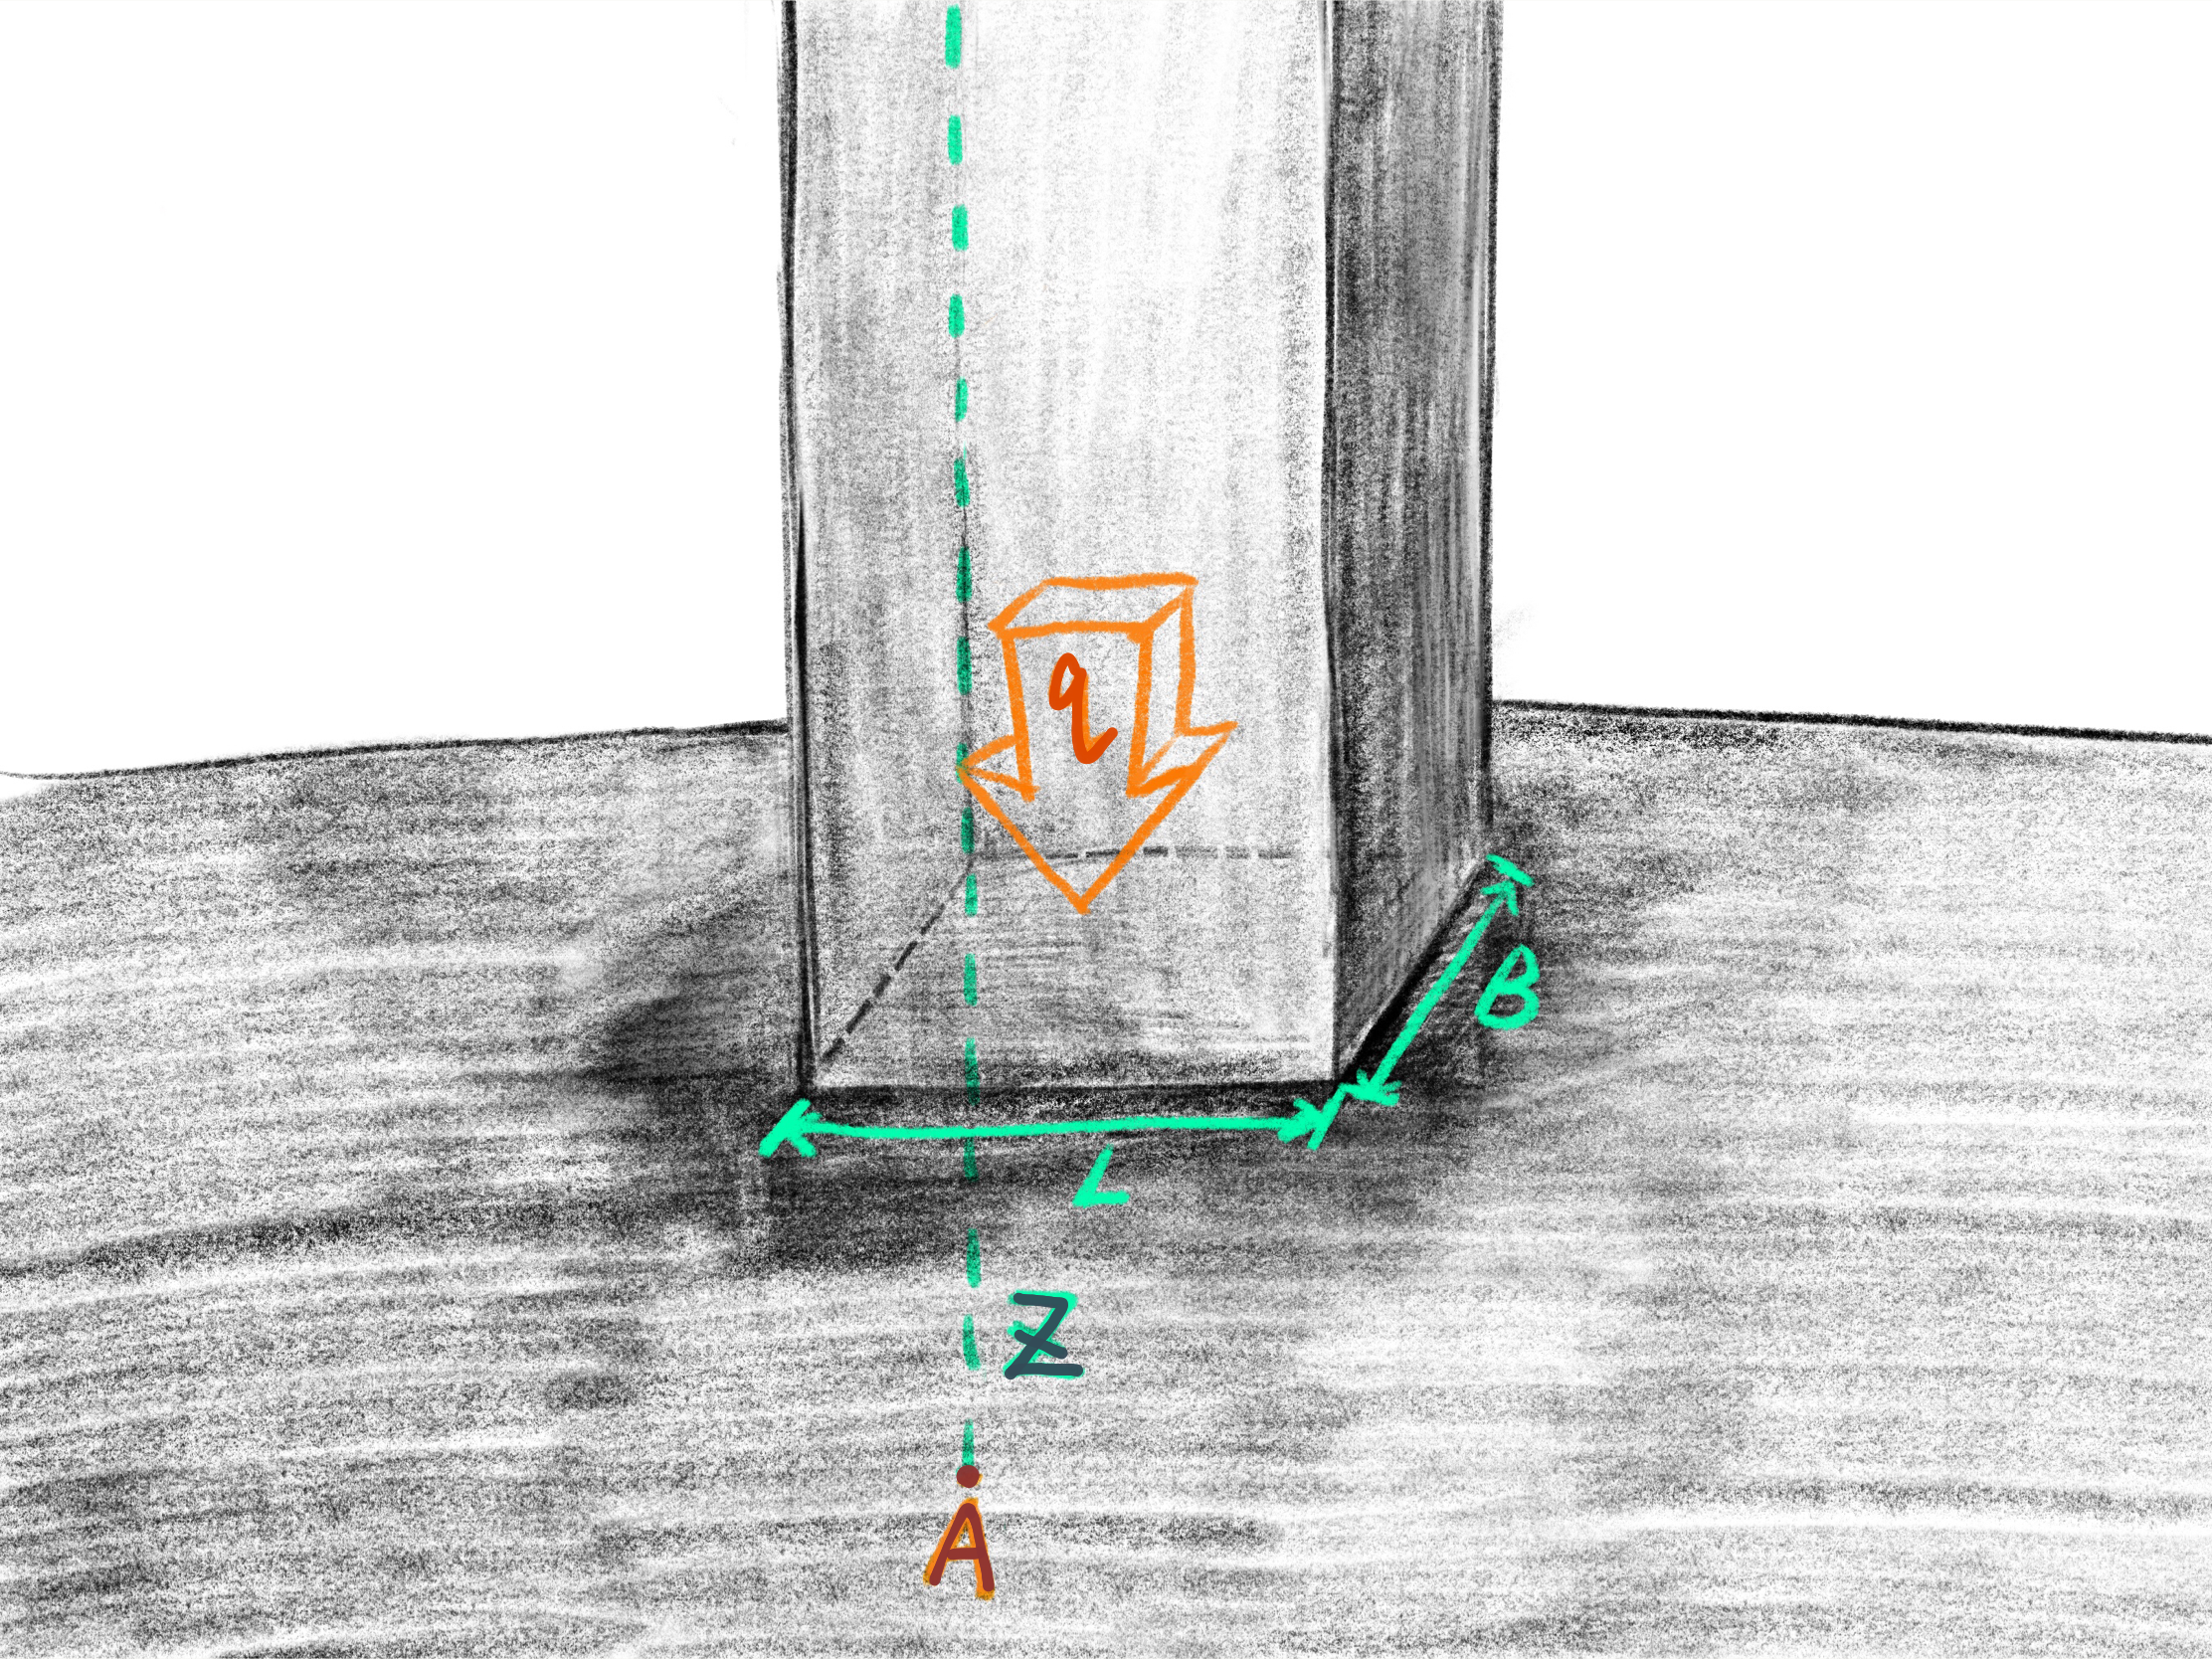 q
B
L
Z
A